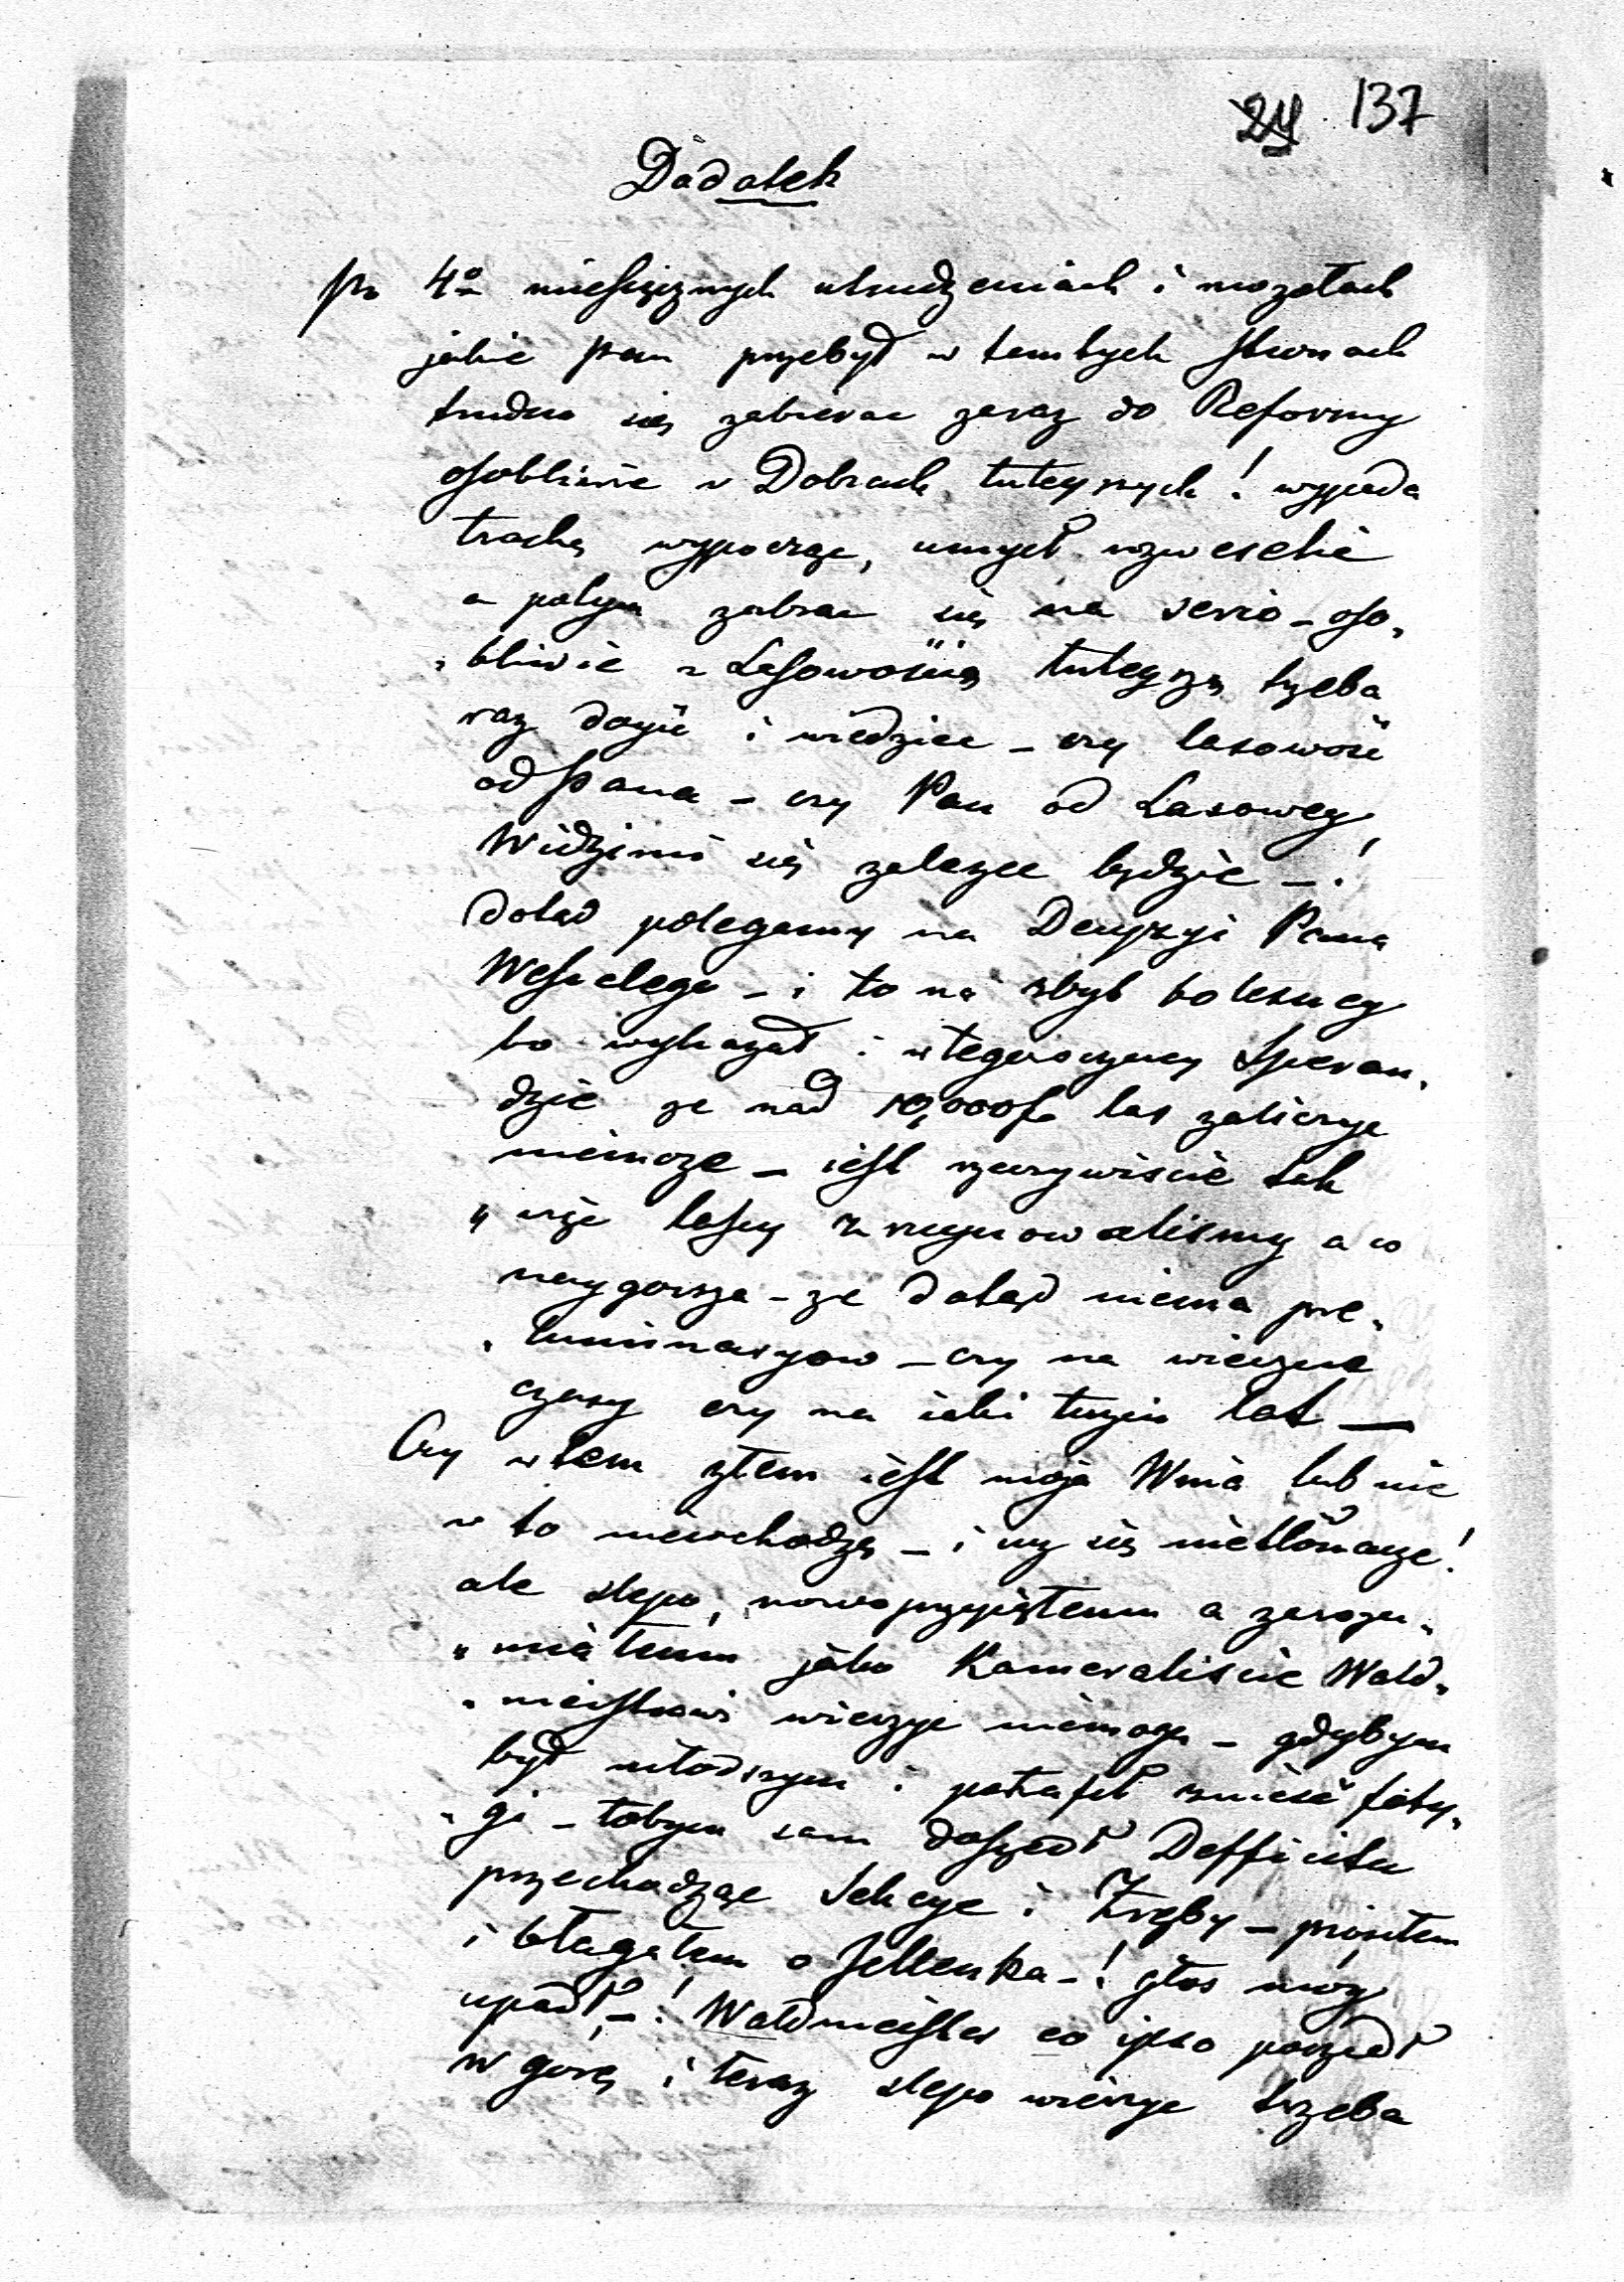 24 137
Dodatek
po 4o miesięcznych utrudzeniach i mozołach
jakie Pan przebył w tamtych stronach
trudno się zabierac zaraz do Reformy
osobliwie w Dobrach tuteyszych! wypada
trochę wypocząc, umysł rozweselic
a potym zabrac się na serio – oso„
„bliwie z Lasowością tuteyszą trzeba
raz dojść i wiedziec – czy lasowość
od Pana – czy Pan od Lasowey
Widzimi się zalezec będzie – !
dotąd polegamy na Decyzyi Pana
Wesselego – i to na zbyt bolesney
bo wykazał i w tegoroczney Speran„
dzie ze nad 10,000f. las zaliczyc
niemoze – iest rzeczywiscie tak
„ uze lasy zruynowalismy a co
naygorsza – ze dotąd niema pre„
„liminaryow – czy na wieczne
czasy czy na iaki tuzin lat —
Czy w tem złem iest moja Wina lub nie
w to niewchodzę – i uz się nietłomaczę!
ale slepo, nowoprzyjętemu a zarozu„
„miałemu jako Kameraliscie Wald„
„meistrowi wierzyc niemogę – gdybym
był młodszym i potrafił zniesć faty„
„gi – tobym sam doszedł Defficitu
przechodząc Sekcye i Zręby – prosiłem
i błagałem o Jellenka – ! głos móy
upadł, – ! Waldmeister eo ipso poszedł
w gorę i teraz slepo wierzyc trzeba